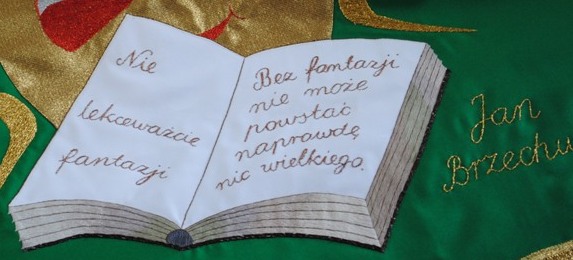 Nie
lekceważcie
fantazji
Bez fantazji
nie może
powstać
naprawdę
nic wielkiego.
Jan